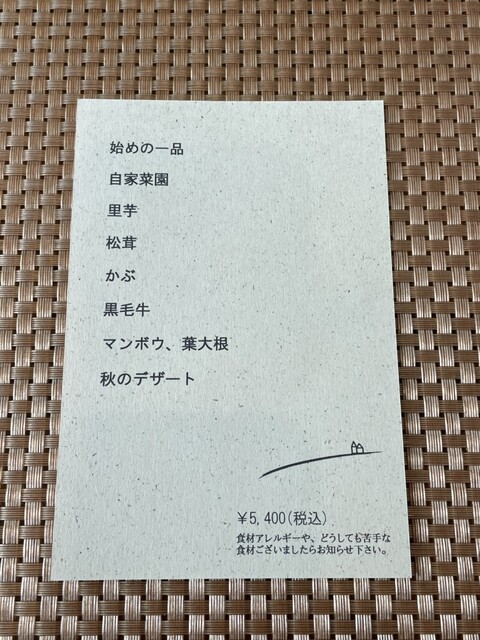 始めの一品
自家菜園
里芋
松茸
かぶ
黒毛牛
マンボウ、葉大根
秋のデザート
￥5,400(税込)
食材アレルギーや、どうしても苦手な
食材ございましたらお知らせ下さい。